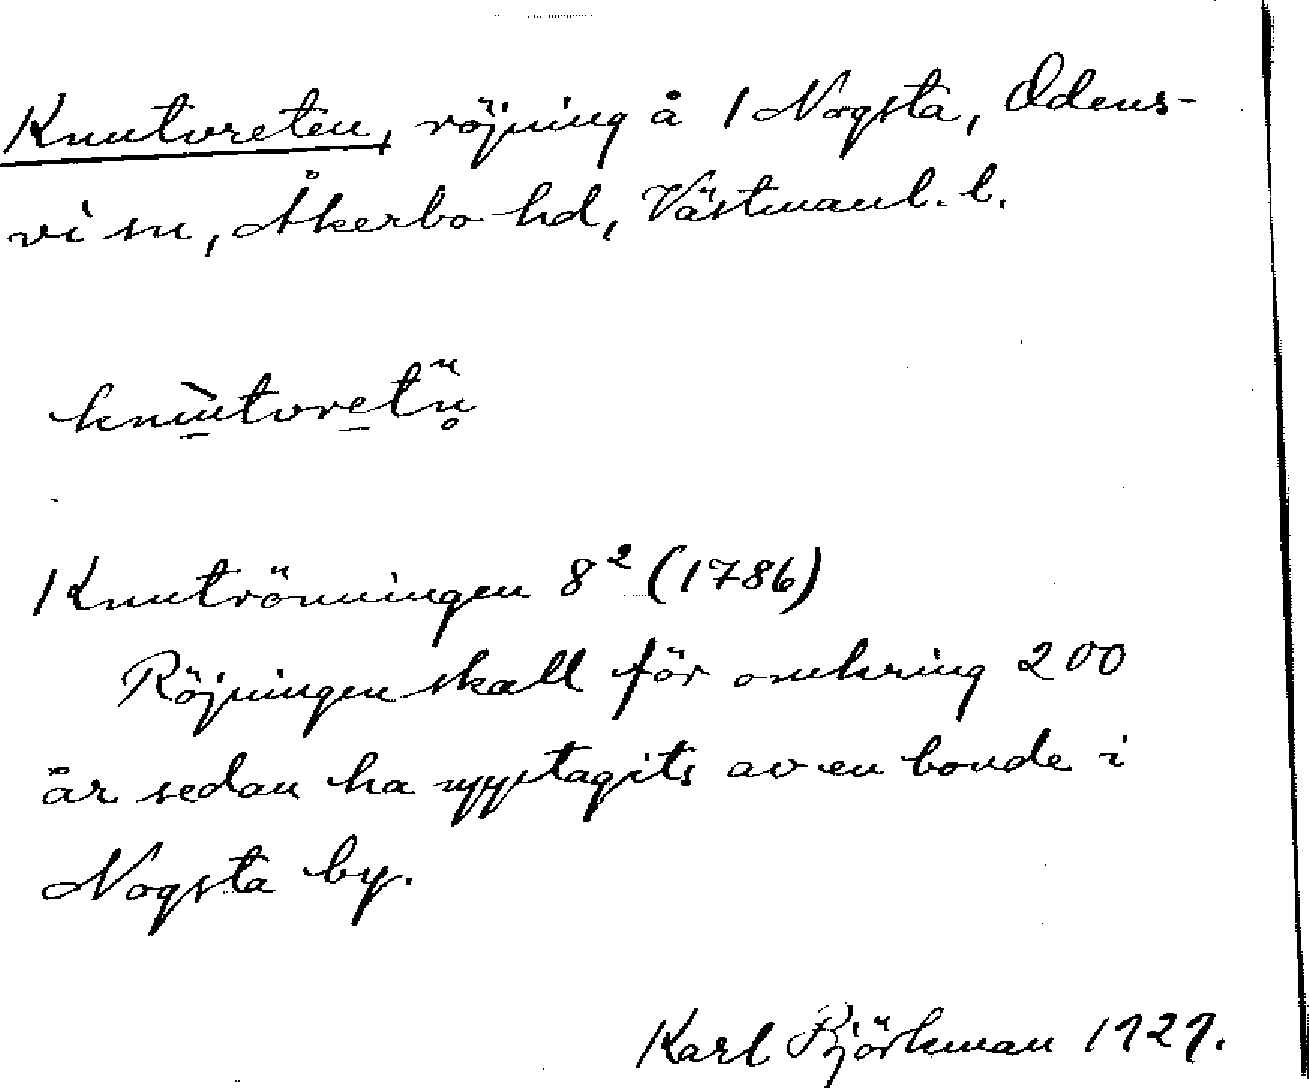 Knutvreten, röjning å / Nogsta, Odens-
vi sn, Åkerbo hd, Västmanl. l.
knùtvretn̥
/ Knutrönningen 8² (1786)
Röjningen skall för omkring 200
år sedan ha upptagits av en bonde i
Nogsta by.
Karl Björkman 1929.